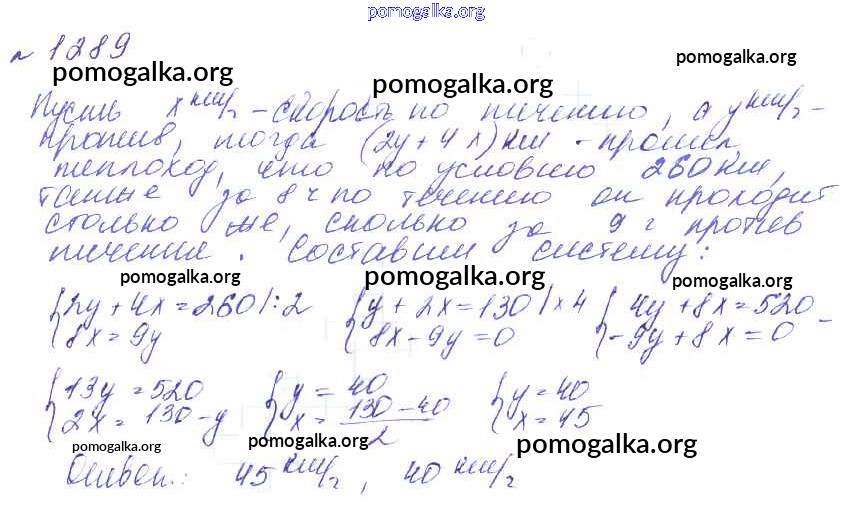 pomogalka.org
№ 1289
pomogalka.org pomogalka.org pomogalka.org
Пусть x км/ч - скорость по течению, а y км/ч -
против, тогда (2y + 4x) км - прошел
теплоход, что по условию 260 км,
также за 8 ч по течению он проходит
столько же, сколько за 9 ч против
течения. Составим систему:
pomogalka.org pomogalka.org pomogalka.org
{2y + 4x = 260 |:2 {y + 2x = 130 | x 4 {4y + 8x = 520 -
{8x = 9y {8x - 9y = 0 {-9y + 8x = 0
{13y = 520 {y = 40 {y = 40
{2x = 130 - y {x = (130 - 40)/2 {x = 45
pomogalka.org pomogalka.org pomogalka.org
Ответ: 45 км/ч, 40 км/ч